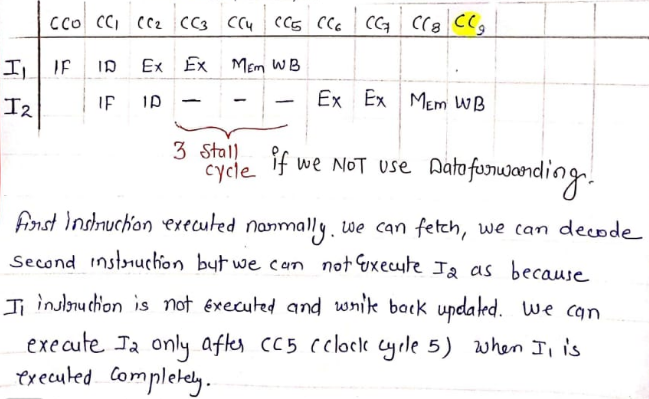 CC0 CC1 CC2 CC3 CC4 CC5 CC6 CC7 CC8 CC9
I1 IF ID Ex Ex Mem WB
I2 IF ID - - - Ex Ex Mem WB
3 Stall cycle if we NOT use Dataforwarding.
first Instruction executed normally. we can fetch, we can decode
second instruction but we can not Execute I2 as because
I1 instruction is not executed and write back updated. we can
execute I2 only after CC5 (clock cycle 5) when I1 is
executed Completely.